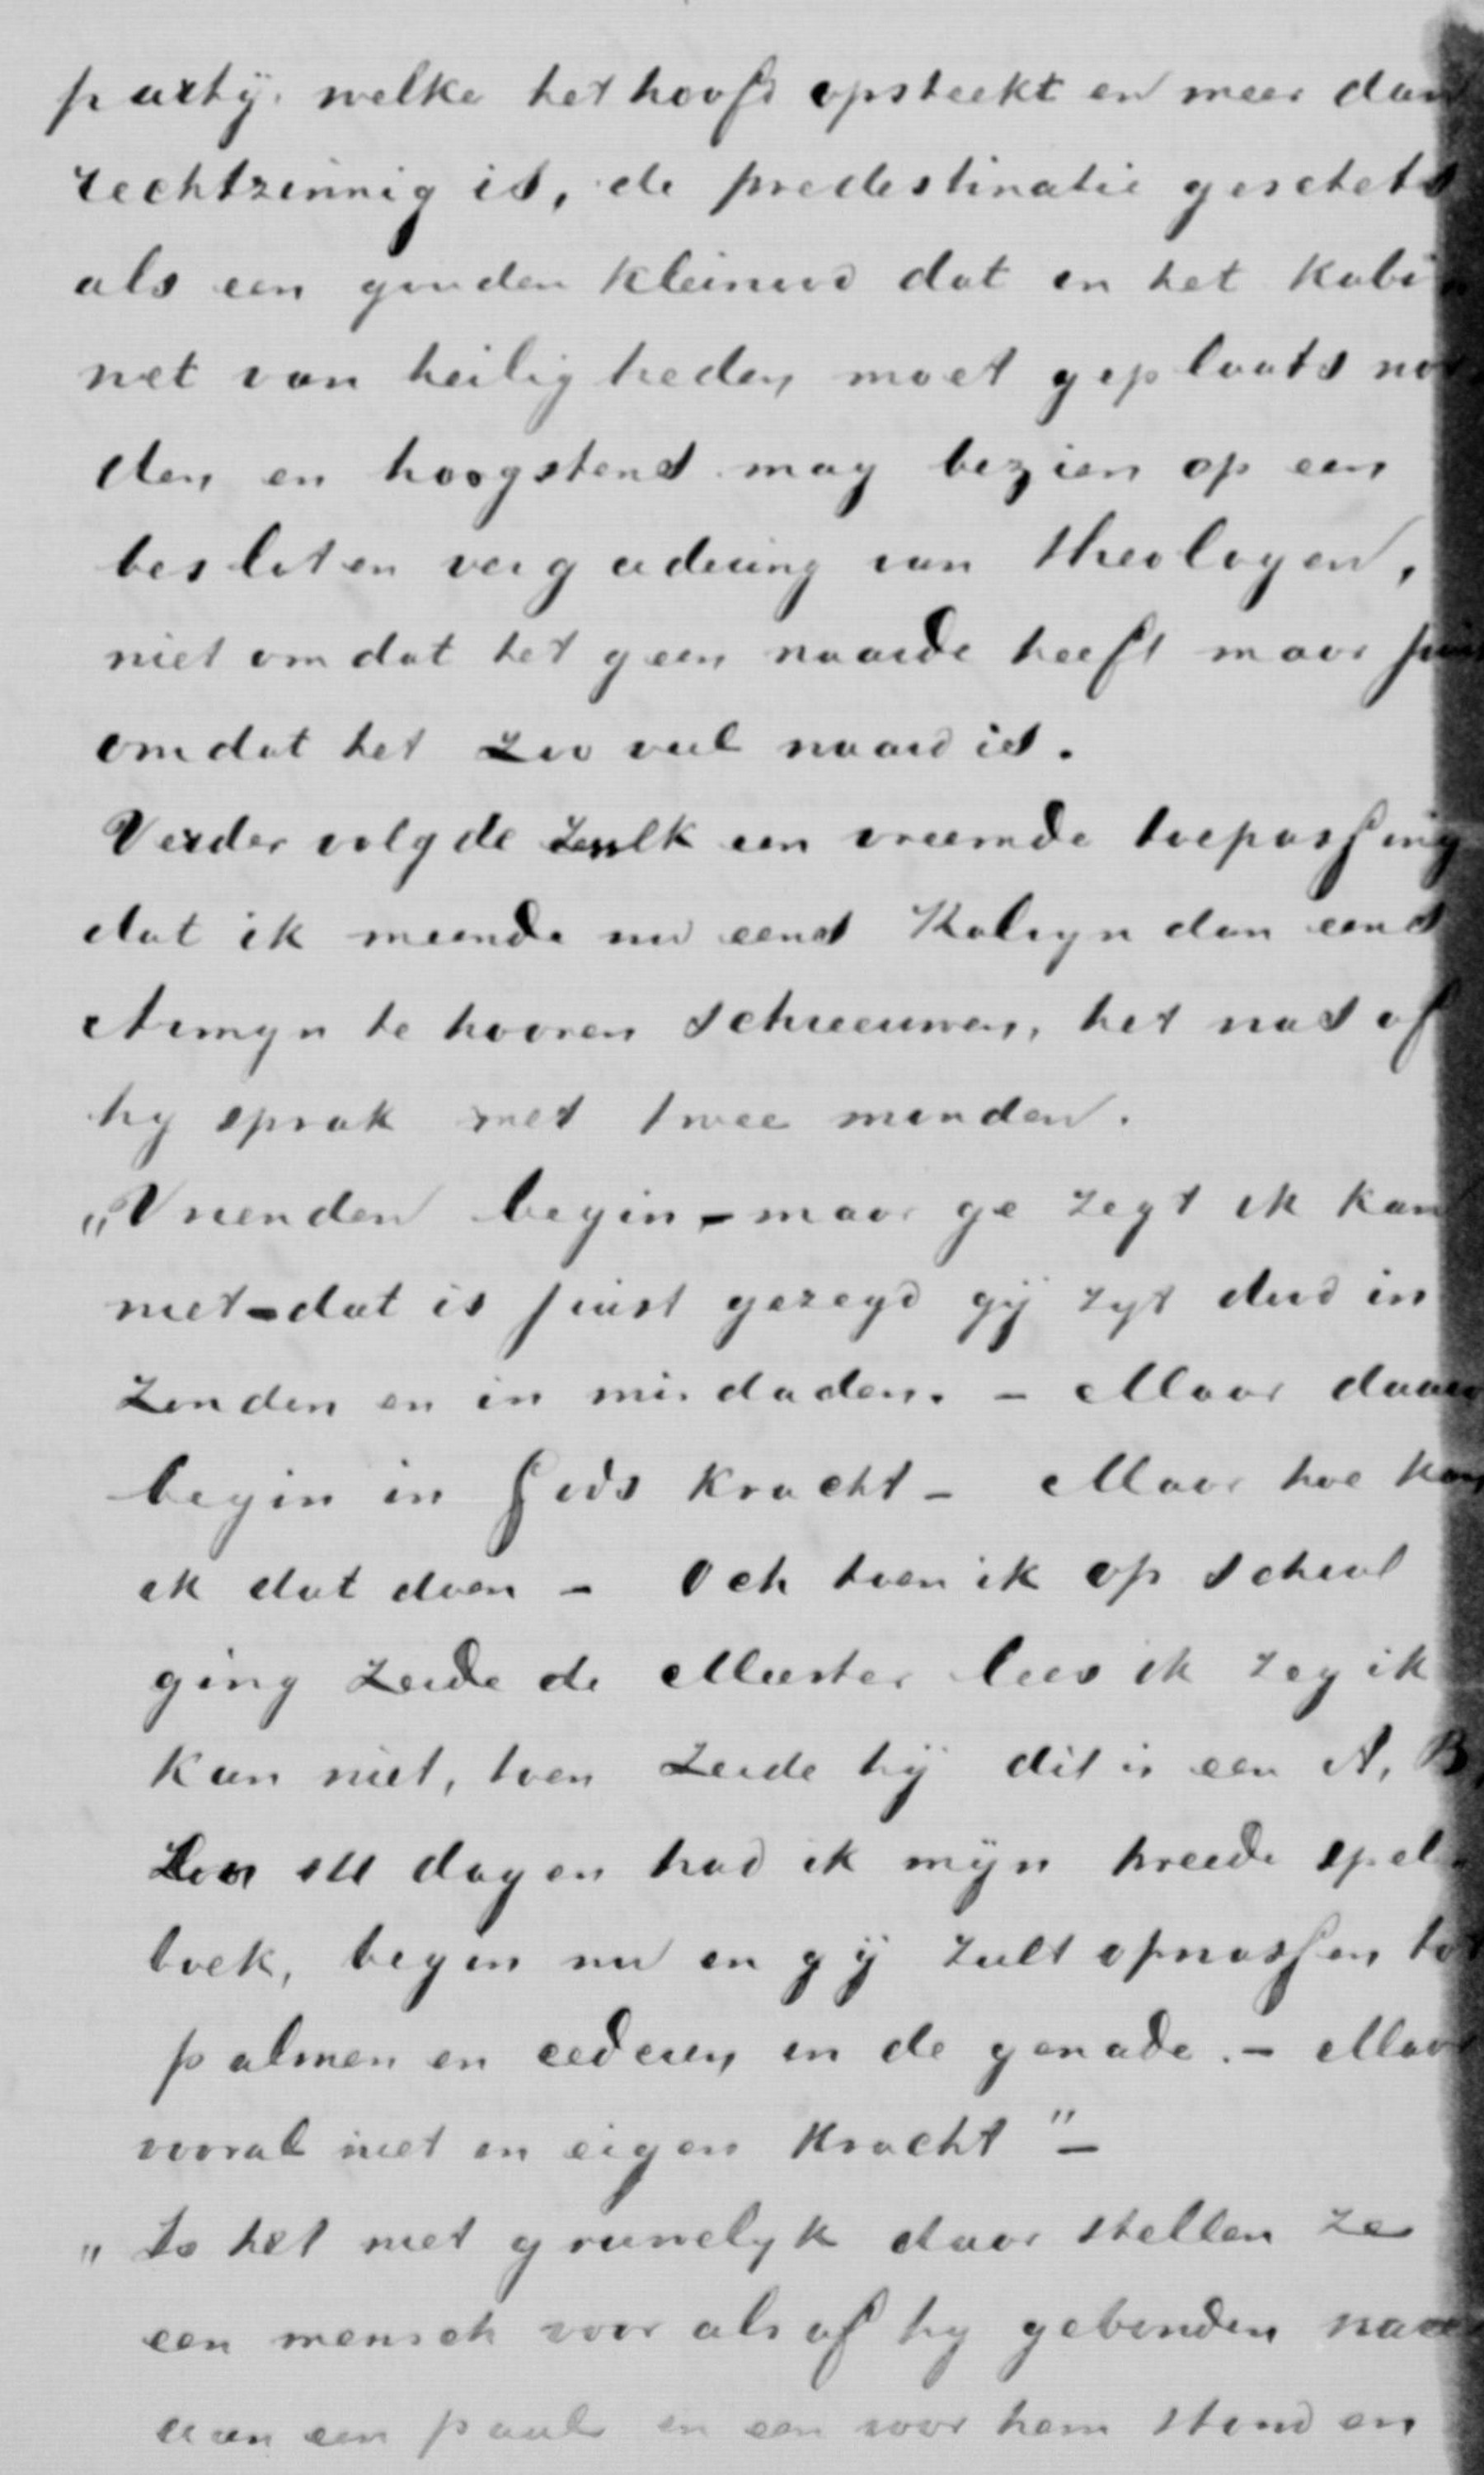 party welke het hoofd opsteekt en meer dan
rechtzinnig is, de predestinatie geschetst
als een gouden kleinood dat in het kabi
net van heiligheden moet geplaats wor
den en hoogstens mag bezien op een
besloten vergadering van theologen,
niet omdat het geen waarde heeft maar juist
omdat het zoo veel waard is.
Verder volgde zulk een vreemde toepassing
dat ik meende nu eens Kalvyn dan eens
Armyn te hooren schreeuwen, het was of
hy sprak met twee monden.
„Vrienden begin - maar ge zegt ik kan
niet - dat is juist gezegd gij zyt dood in
zonden en in misdaden. - Maar daarom
begin in Gods kracht - Maar hoe kan
ik dat doen - Och toen ik op school
ging zeide de Meester lees ik zeg ik
kan niet, toen zeide hij dit is een A, B
Zoo dagen had ik mijn tweede spel
boek, begin nu en gij zult opwassen tot
palmen en cederen in de genade. - Maar
vooral niet in eigen kracht" -
„Is het niet gruwelyk daar stellen ze
een mensch voor alsof hy gebonden was
aan een paal en een voor hem stond en